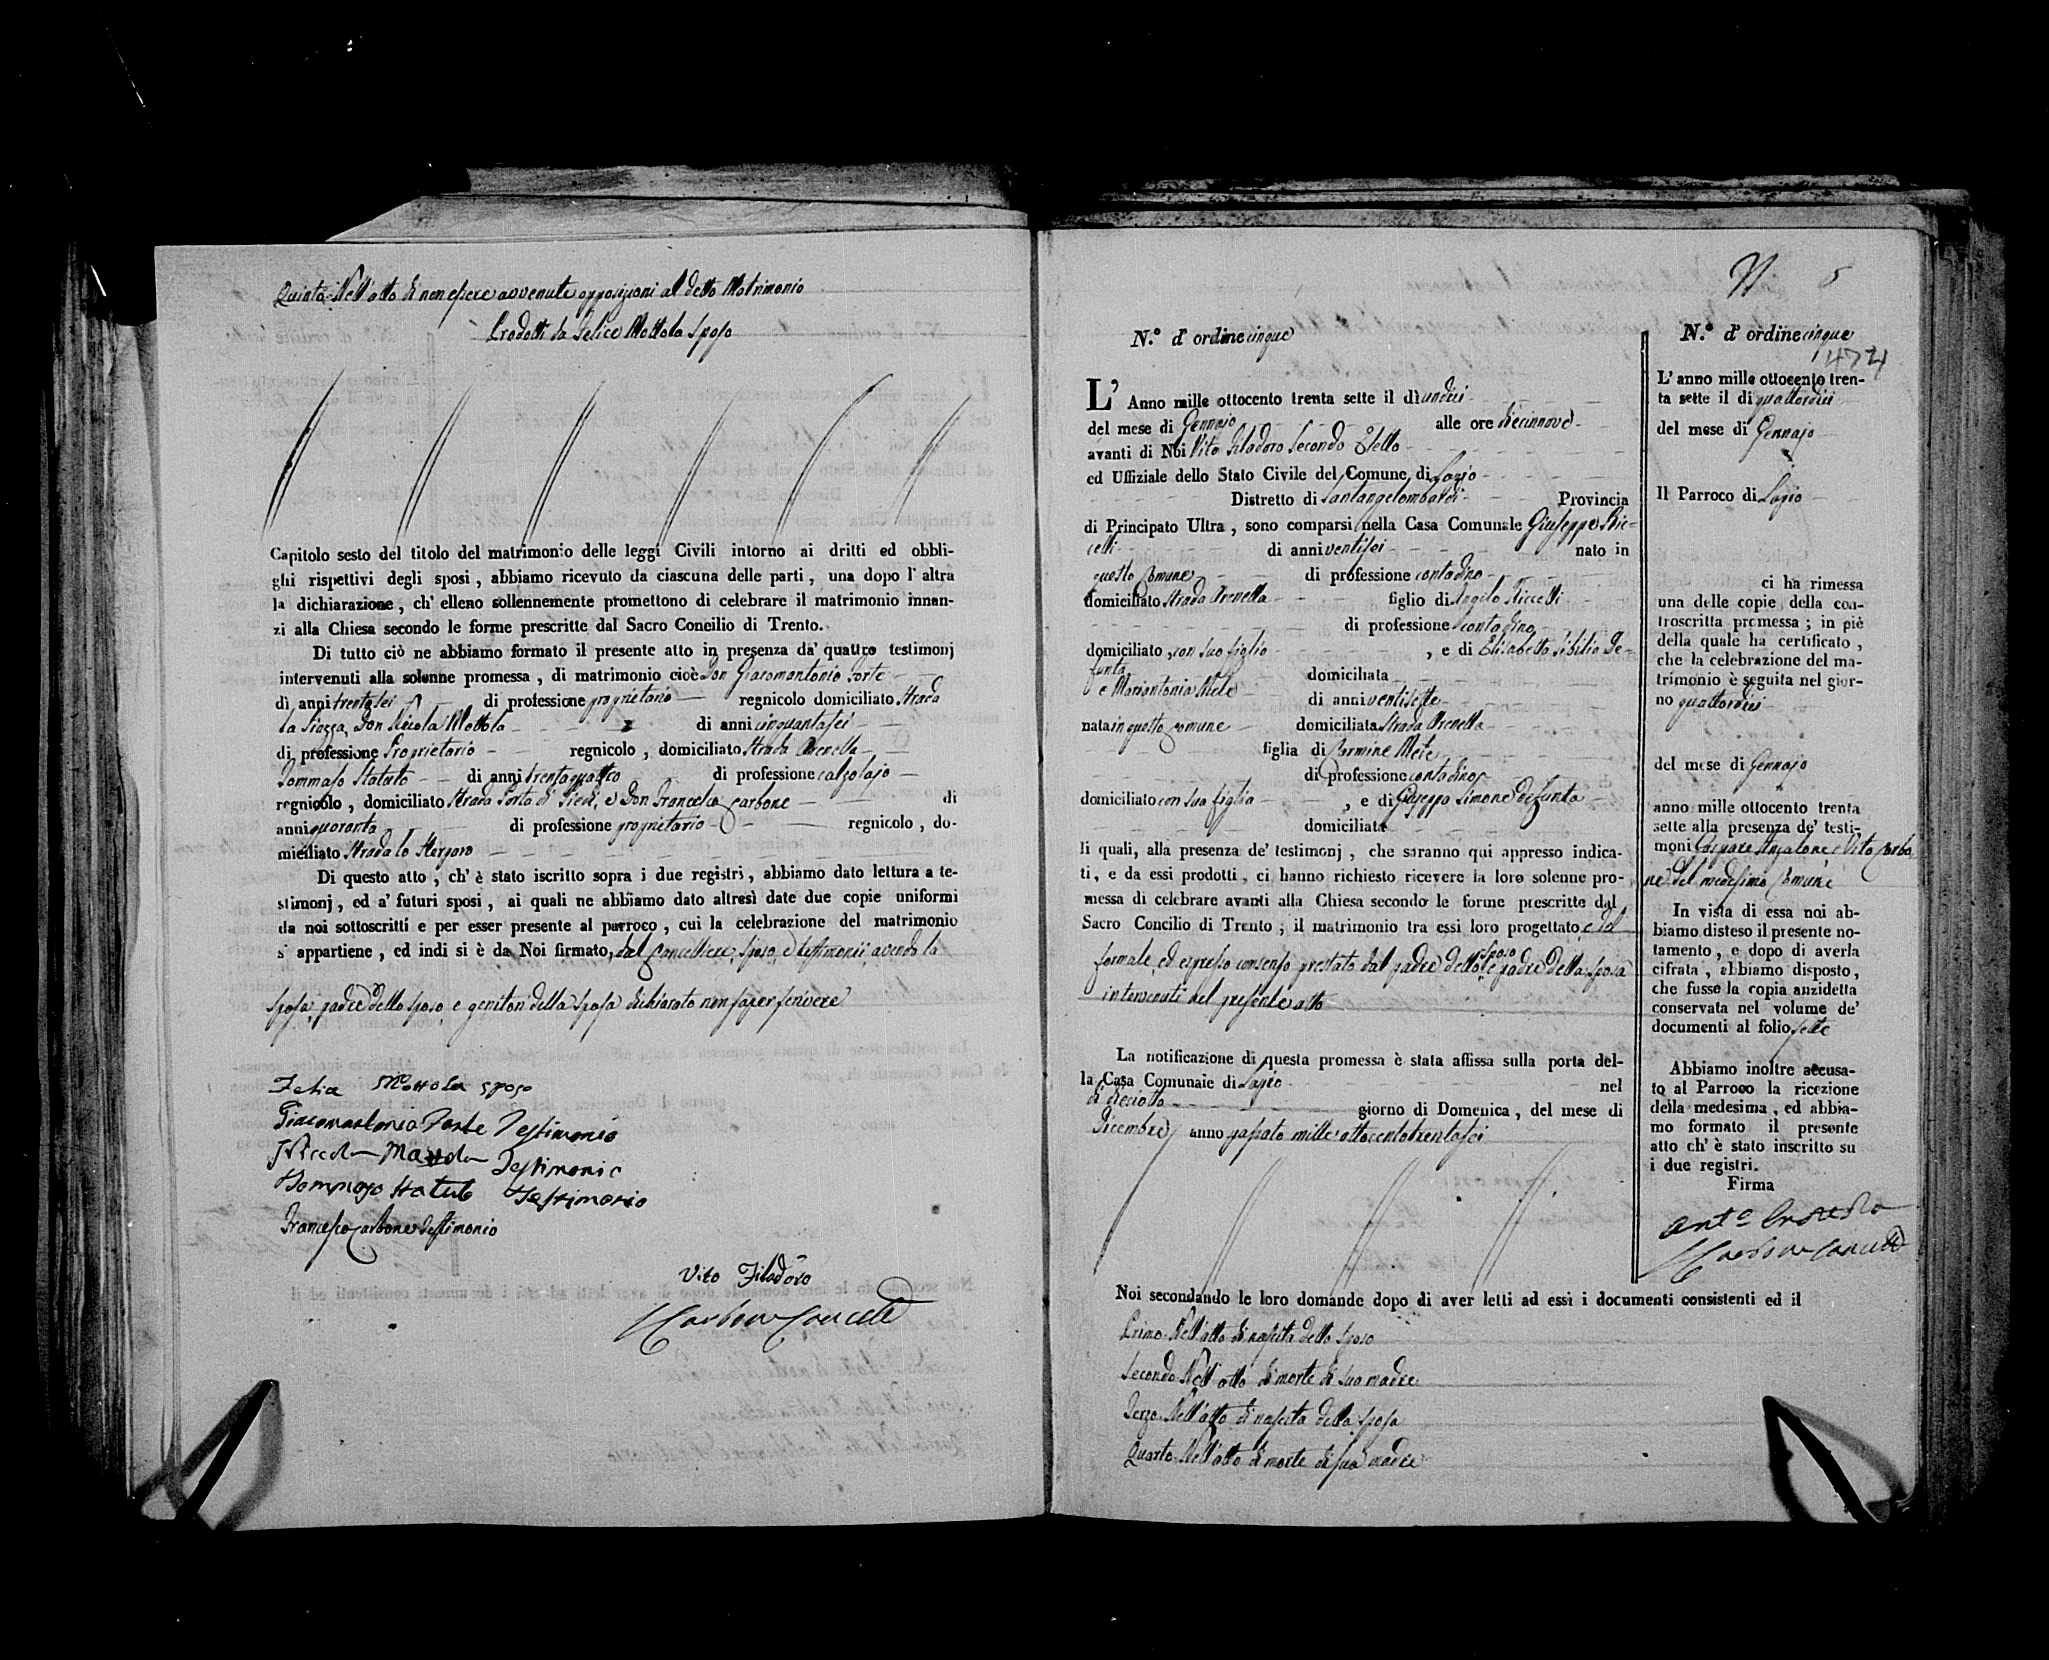 Quinto. Nell'atto di non essere avvenute opposizioni al detto Matrimonio
Prodotti da Felice Mottola sposo
Capitolo sesto del titolo del matrimonio delle leggi Civili intorno ai dritti ed obbli-
ghi rispettivi degli sposi, abbiamo ricevuto da ciascuna delle parti, una dopo l'altra
la dichiarazione, ch'elleno sollennemente promettono di celebrare il matrimonio innan-
zi alla Chiesa secondo le forme prescritte dal Sacro Concilio di Trento.
Di tutto ciò ne abbiamo formato il presente atto in presenza da' quattro testimonj
intervenuti alla solenne promessa, di matrimonio cioè Don Giacomantonio Forte
di anni trentasei di professione proprietario regnicolo domiciliato Strada
la Piazza, Don Nicola Mottola di anni cinquantasei
di professione Proprietario regnicolo, domiciliato Strada Arenella
Tommaso Statuto di anni trentaquattro di professione calzolajo
regnicolo, domiciliato Strada Porta di Piedi, e Don Francesco Carbone di
anni quaranta di professione proprietario regnicolo, do-
miciliato Strada lo
Di questo atto, ch'è stato iscritto sopra i due registri, abbiamo dato lettura a te-
stimonj, ed a' futuri sposi, ai quali ne abbiamo dato altresì date due copie uniformi
da noi sottoscritti e per esser presente al parroco, cui la celebrazione del matrimonio
s'appartiene, ed indi si è da Noi firmato, dal Cancelliere, sposo, e testimonii avendo la
sposa, padre dello sposo, e genitori della sposa dichiarato non saper scrivere
Felice Mottola sposo
Giacomantonio Forte Testimonio
Nicola Mottola Testimonio
Tommaso Statuto Testimonio
Francesco Carbone Testimonio
Vito Filadoro
Carbone Cancell
N 5
N.° d'ordine cinque
L' Anno mille ottocento trenta sette il dì undici
del mese di Gennajo alle ore diecinnove
avanti di Noi Vito Filadoro Secondo Eletto
ed Uffiziale dello Stato Civile del Comune di
Distretto di Santangelombardi Provincia
di Principato Ultra, sono comparsi nella Casa Comunale Giuseppe Ric-
celli di anni ventisei nato in
questo Comune di professione contadino
domiciliato Strada Arenella figlio di Angelo Riccelli
di professione contadino
domiciliato, con suo figlio, e di Elisabetta Sibilia De-
funta domiciliata
e Mariantonia Mele di anni ventisette
nata in questo Comune domiciliata Strada Arenella
figlia di Carmine Mele
di professione contadino
domiciliato con sua figlia, e di Giuseppa Simone defunta
domiciliata
li quali, alla presenza de' testimonj, che saranno qui appresso indica-
ti, e da essi prodotti, ci hanno richiesto ricevere la loro solenne pro-
messa di celebrare avanti alla Chiesa secondo le forme prescritte dal
Sacro Concilio di Trento; il matrimonio tra essi loro progettato, e col
formale, ed espresso consenso prestato dal padre dello sposo e padre della sposa
intervenuti nel presente atto
La notificazione di questa promessa è stata affissa sulla porta del-
la Casa Comunale di nel
dì dieciotto giorno di Domenica, del mese di
Dicembre anno passato mille ottocento trentasei
Noi secondando le loro domande dopo di aver letti ad essi i documenti consistenti ed il
Primo. Nell'atto di nascita dello sposo
Secondo Nell'atto di morte di sua madre
Terzo. Nell'atto di nascita della sposa
Quarto. Nell'atto di morte di sua madre
N.° d'ordine cinque
474
L'anno mille ottocento tren-
ta sette il di quattordici
del mese di Gennajo
Il Parroco di
ci ha rimessa
una delle copie della con-
troscritta promessa; in piè
della quale ha certificato,
che la celebrazione del ma-
trimonio è seguita nel gior-
no quattordici
del mese di Gennajo
anno mille ottocento trenta
sette alla presenza de' testi-
moni Gaspare Anzalone e Vito Carbo-
ne del medesimo Comune
In vista di essa noi ab-
biamo disteso il presente no-
tamento, e dopo di averla
cifrata, abbiamo disposto,
che fusse la copia anzidetta
conservata nel volume de'
documenti al folio sette
Abbiamo inoltre accusa-
to al Parroco la ricezione
della medesima, ed abbia-
mo formato il presente
atto ch'è stato inscritto su
i due registri.
Firma
Carbone Cancell